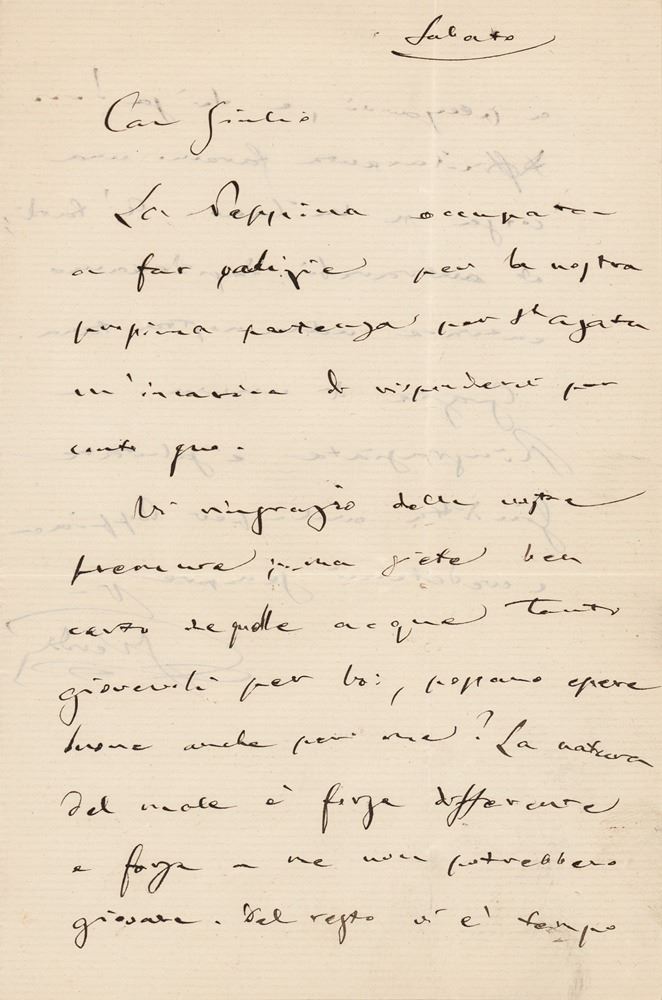 Sabato
Car Giulio
La Peppina occupata
a far valigie per la nostra
prossima partenza per St Agata
m'incarica di rispondervi per
conto suo.
Vi ringrazio della vostra
premura ma siete ben
certo che quelle acque tanto
giovevoli per voi, possano essere
buone anche per me? La natura
del male è forse differente
e forse a me non potrebbero
giovare. Del resto vi è tempo